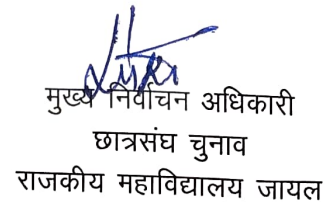 मुख्य निर्वाचन अधिकारी
छात्रसंघ चुनाव
राजकीय महाविद्यालय जायल